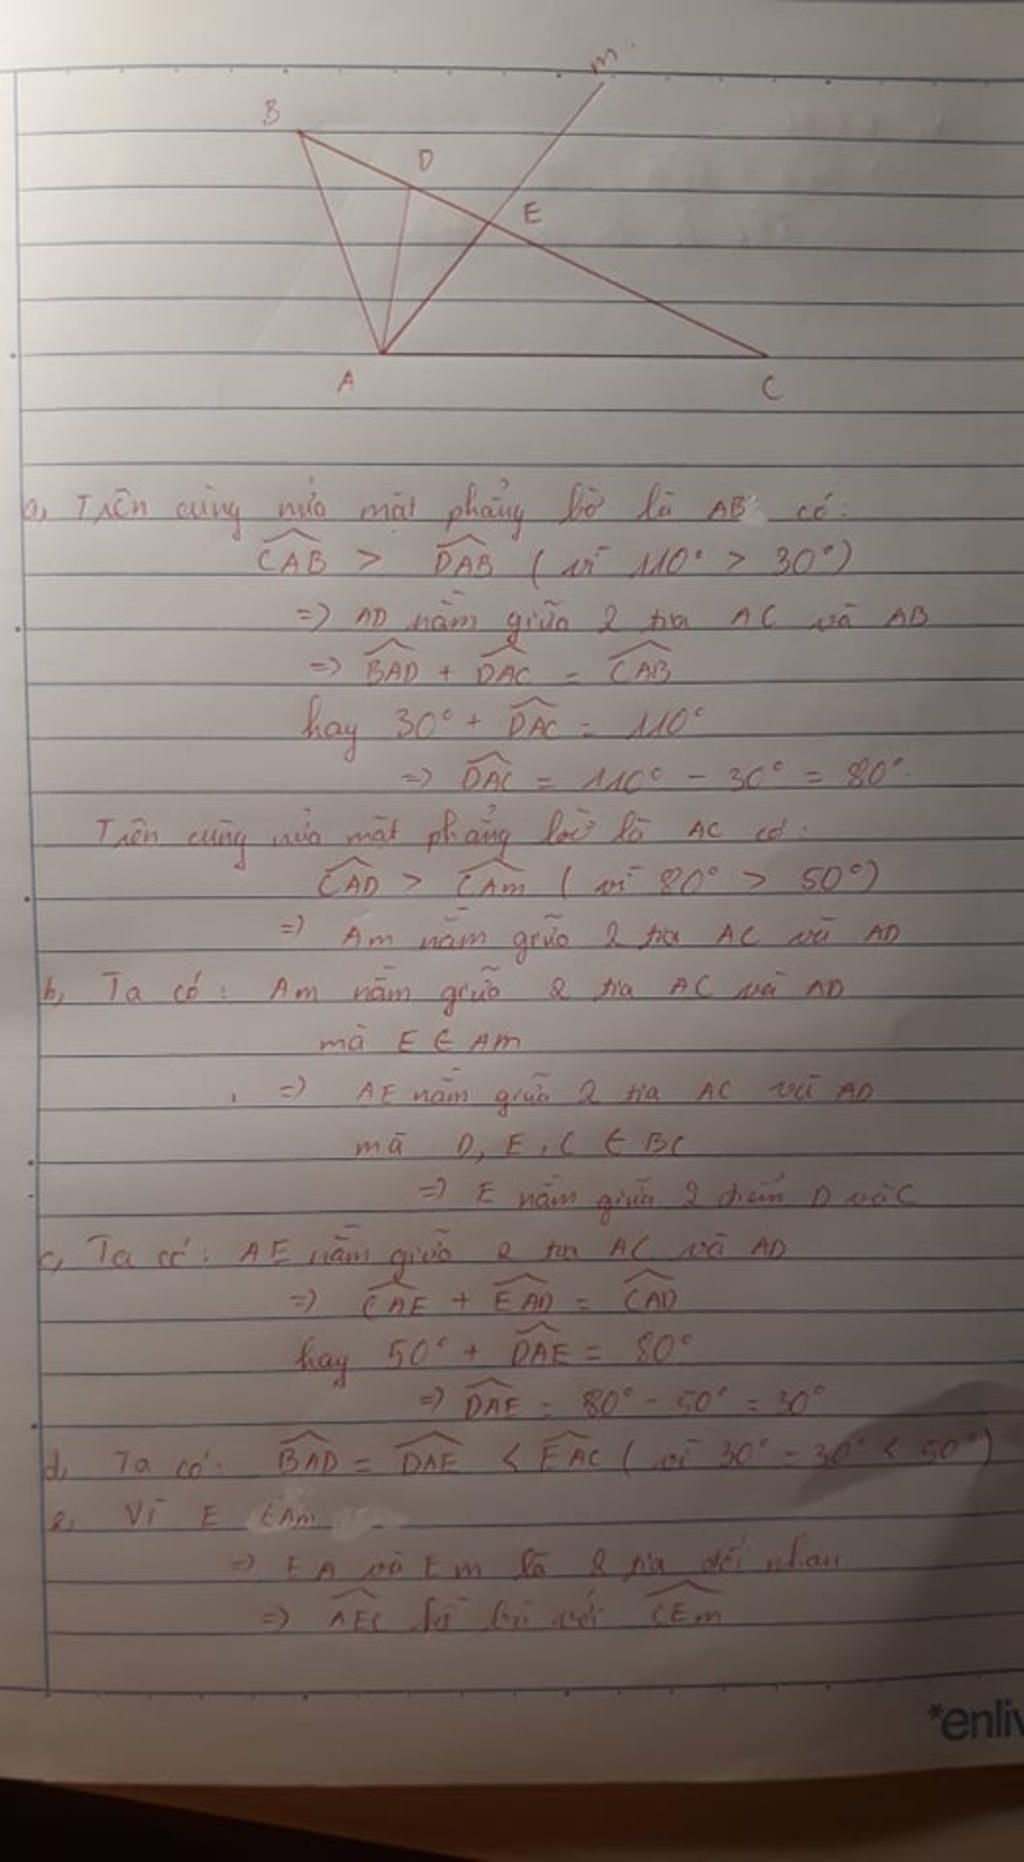 M
B
D
E
A
C
a, Trên cùng nửa mặt phẳng bờ là AB có:
CAB > DAB ( vì 110° > 30°)
=> AD nằm giữa 2 tia AC và AB
=> BAD + DAC = CAB
hay 30° + DAC = 110°
=> DAC = 110° - 30° = 80°
Trên cùng nửa mặt phẳng bờ là AC có:
CAD > CAm ( vì 80° > 50°)
=> Am nằm giữa 2 tia AC và AD
b, Ta có: Am nằm giữa 2 tia AC và AD
mà E ∈ Am
=> AE nằm giữa 2 tia AC và AD
mà D, E, C ∈ BC
=> E nằm giữa 2 điểm D và C
c, Ta có: AE nằm giữa 2 tia AC và AD
=> CAE + EAD = CAD
hay 50° + DAE = 80°
=> DAE = 80° - 50° = 30°
d, Ta có: BAD = DAE < EAC ( vì 30° = 30° < 50°)
e, Vì E ∈ Am
=> EA và Em là 2 tia đối nhau
=> AEC kề bù với CEm
*enliv